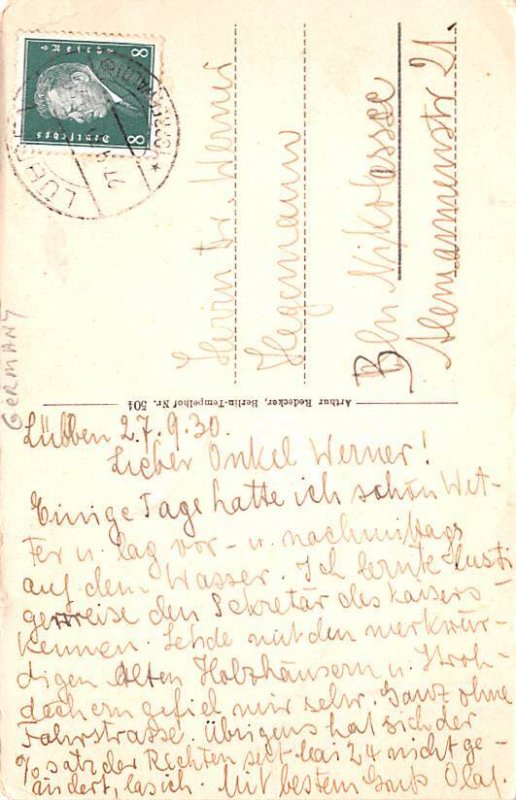 8 8
Deutsches
Reich
LÜBBEN
(SPREEWALD)
Herrn Dr. Werner
Hegemann
Bln Nikolassee
Alemannenstr 21.
GERMANY
Arthur Redecker, Berlin-Tempelhof Nr. 504
Lübben 27.9.30.
Lieber Onkel Werner!
Einige Tage hatte ich schön Wet-
ter u. lag vor- u. nachmittags
auf dem Wasser. Ich lernte lusti
gerweise den Sekretär des Kaisers
kennen. Lehde mit den merkwür-
digen alten Holzhäusern u. Stroh-
dächern gefiel mir sehr. Ganz ohne
Fahrstrasse. Übrigens hat sich der
%satz der Rechten seit Mai 24 nicht ge-
ändert, las ich. Mit bestem Gruß Olaf.